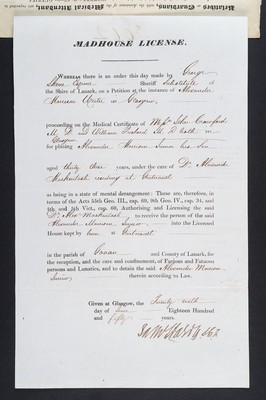 MADHOUSE LICENSE.
WHEREAS there is an order this day made by George
Skene Esquire Sheriff Substitute of
the Shire of Lanark, on a Petition at the instance of Alexander
Morrison Writer in Glasgow,
proceeding on the Medical Certificate of Messrs John Crawford
M. D & William Ireland M. D both in
Glasgow
for placing Alexander Morrison Junior his Son
aged thirty three years, under the care of Dr Alexander
Mackintosh residing at Gartnavel
as being in a state of mental derangement: These are, therefore, in
terms of the Acts 55th Geo. III., cap. 69, 9th Geo. IV., cap. 34, and
4th and 5th Vict., cap. 60, Authorising and Licensing the said
Dr Alexr Mackintosh to receive the person of the said
Alexander Morrison Junior into the Licensed
House kept by him at Gartnavel
in the parish of Govan and County of Lanark, for
the reception, and the care and confinement, of Furious and Fatuous
persons and Lunatics, and to detain the said Alexander Morrison
Junior therein according to Law.
Given at Glasgow, the Twenty
day of June Eighteen Hundred
and fifty years.